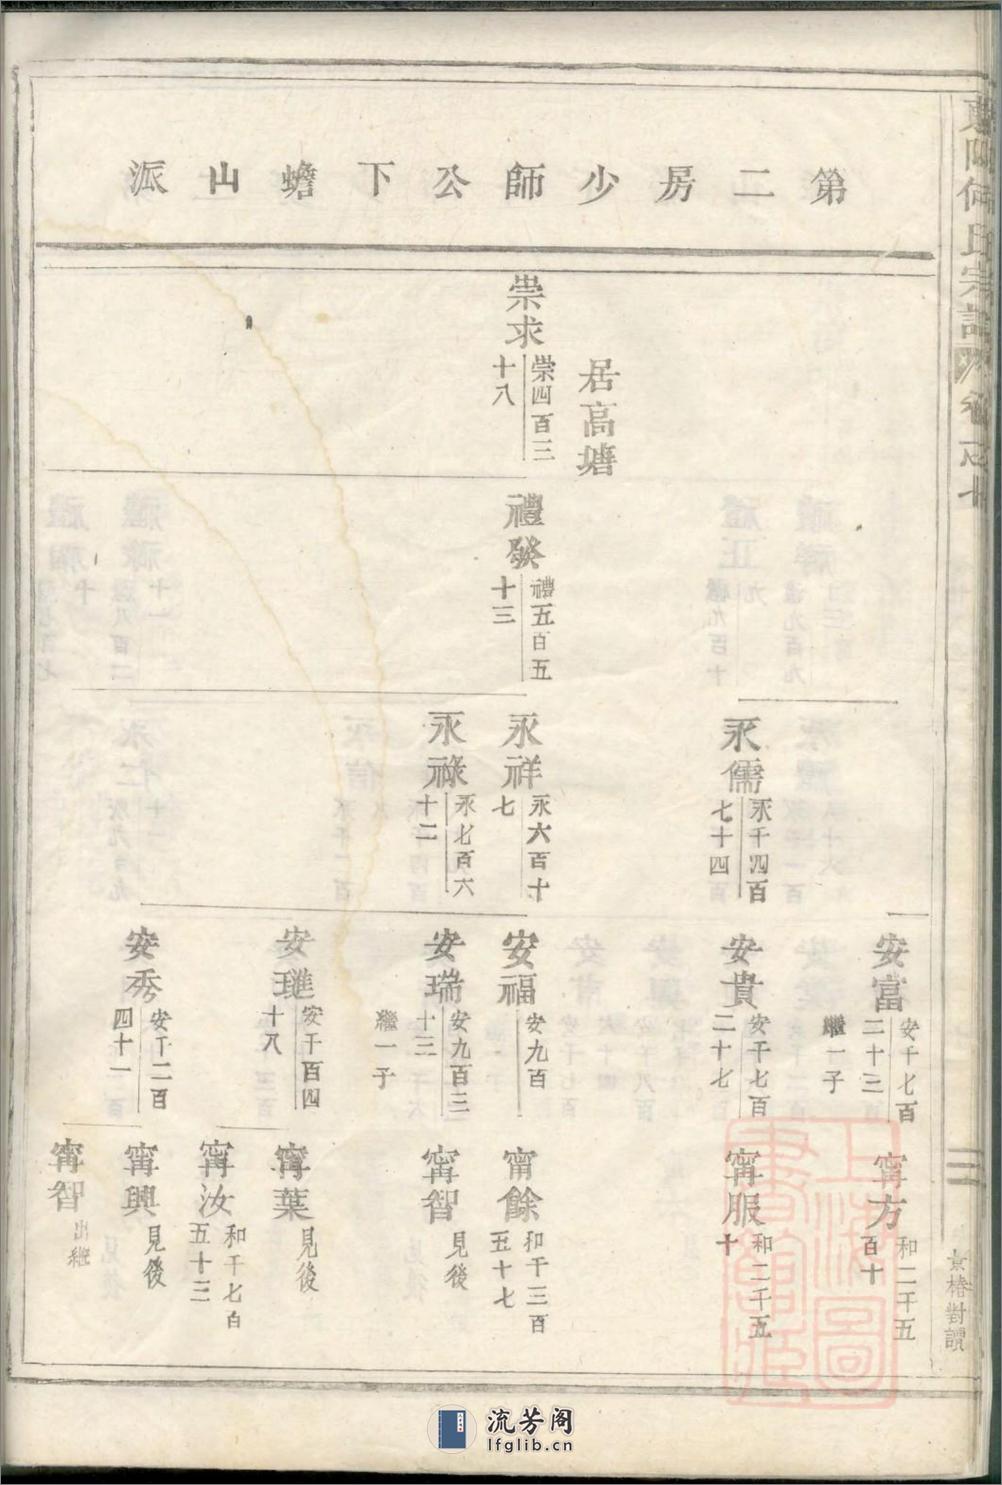 第二房少師公下蟾山派
居高塘
崇求
崇四百三
十八
禮發
禮五百五
十三
永儒
永千四百
七十四
永祥
永六百十
七
永祿
永七百六
十二
安富
安千七百
二十三
繼一子
安貴
安千七百
二十七
安福
安九百
安瑞
安九百三
十三
繼一子
安璡
安千百四
十八
安秀
安千二百
四十一
甯方
和二千五
百十
甯服
和二千五
十
甯餘
和千三百
五十七
甯智
見後
甯葉
見後
甯汝
和千七百
五十三
甯興
見後
甯智
出繼
何氏宗譜
卷之十
三
對讀
上海圖書館藏
流芳阁
lfglib.cn